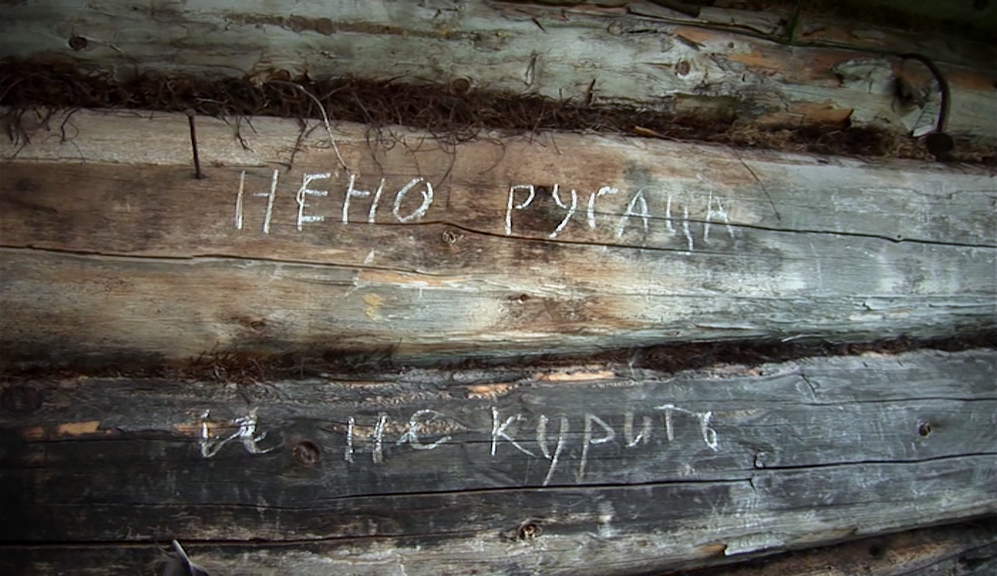 НЕНО РУГАЦА
и не курить